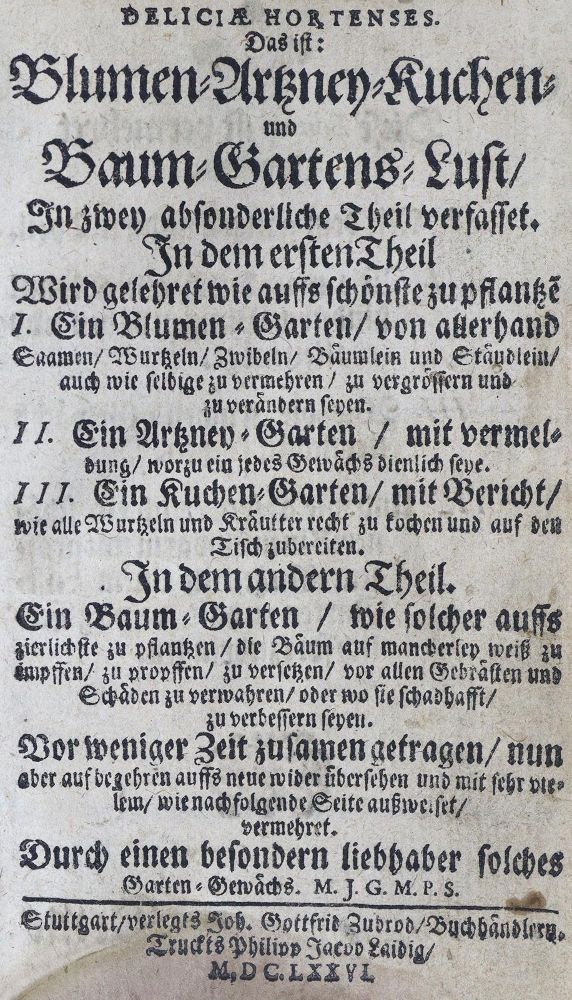 DELICIÆ HORTENSES.
Das ist:
Blumen-Artzney-Kuchen-
und
Baum-Gartens-Lust/
In zwey absonderliche Theil verfasset.
In dem ersten Theil
Wird gelehret wie auffs schönste zu pflantzē
I. Ein Blumen-Garten/ von allerhand
Saamen/ Wurtzeln/ Zwibeln/ Bäumlein und Stäudlein/
auch wie selbige zu vermehren/ zu vergrössern und
zu verändern seyen.
II. Ein Artzney-Garten / mit vermel-
dung/ worzu ein jedes Gewächs dienlich seye.
III. Ein Kuchen-Garten/ mit Bericht/
wie alle Wurtzeln und Kräutter recht zu kochen und auf den
Tisch zubereiten.
In dem andern Theil.
Ein Baum-Garten / wie solcher auffs
zierlichste zu pflantzen/ die Bäum auf mancherley weiß zu
impffen/ zu propffen/ zu versetzen/ vor allen Gebrästen und
Schäden zu verwahren/ oder wo sie schadhafft/
zu verbessern seyen.
Vor weniger Zeit zusamen getragen/ nun
aber auf begehren auffs neue wider übersehen und mit sehr vie-
lem/ wie nachfolgende Seite außweiset/
vermehret.
Durch einen besondern liebhaber solches
Garten-Gewächs. M. J. G. M. P. S.
Stuttgart/ verlegts Joh. Gottfrid Zubrod/ Buchhändlern.
Truckts Philipp Jacob Laidig/
M,DC.LXXVI